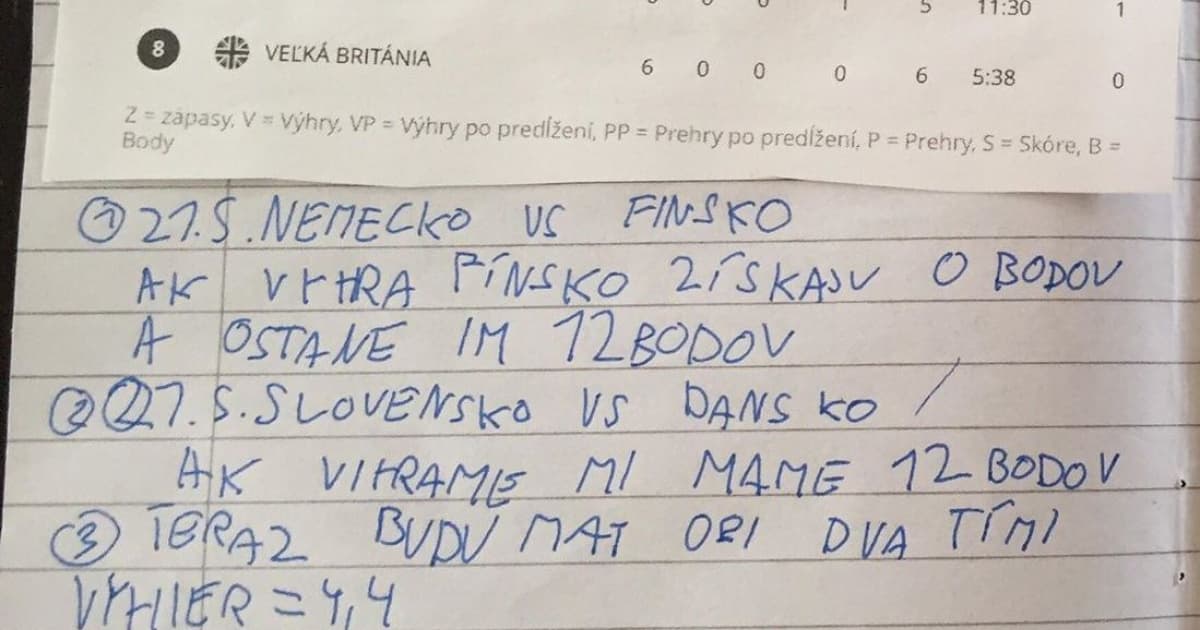 5 11:30 1
8 VEĽKÁ BRITÁNIA 6 0 0 0 6 5:38 0
Z = zápasy, V = Výhry, VP = Výhry po predĺžení, PP = Prehry po predĺžení, P = Prehry, S = Skóre, B =
Body
1 21.5.NEMECKO VS FINSKO
AK VYHRA FÍNSKO ZÍSKAJU 0 BODOV
A OSTANE IM 12 BODOV
2 21.5.SLOVENSKO VS DANSKO /
AK VIHRAME MI MAME 12 BODOV
3 TERAZ BUDU MAT OBI DVA TÍMI
VYHIER = 4,4